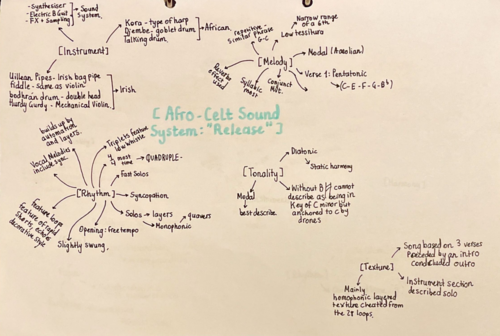 - Synthesiser
- Electric B Guit
- FX + Sampling
Sound
System.
[Instrument]
Kora - type of harp
Djembe - goblet drum
Talking drum.
African.
Uillean Pipes - Irish bag pipe
fiddle - same as violin
bodhrain drum - double head
Hurdy Gurdy - Mechanical Violin.
Irish
repetitive -
similar phrase
G-C
Narrow range
of a 6th
Low tessitura
[Melody]
Modal (Aeolian)
Verse 1: Pentatonic
(C-E-F-G-B♭)
Conjunct
Mvt.
Syllabic
most
Reverbs
effected
[Afro-Celt Sound
System: "Release"]
builds up by
automation
and layers.
Vocal Melodies
include sync.
Triplets feature
low whistle
4/4 most
time
QUADRUPLE-
Fast Solos
[Rhythm]
Syncopation
Solos
layers
quavers
Monophonic
Opening: free tempo
Slightly swung.
Feature loop
feature of rapid
Shorts, echoes
decorative style
[Tonality]
Diatonic
Static harmony
Modal
best describe
Without B♮ cannot
describe as being in
Key of C minor but
anchored to C by
drones
[Texture]
Song based on 3 verses
Preceded by an intro
concluded outro
Instrument section
described solo
Mainly
homophonic layered
texture created from
the 28 loops.